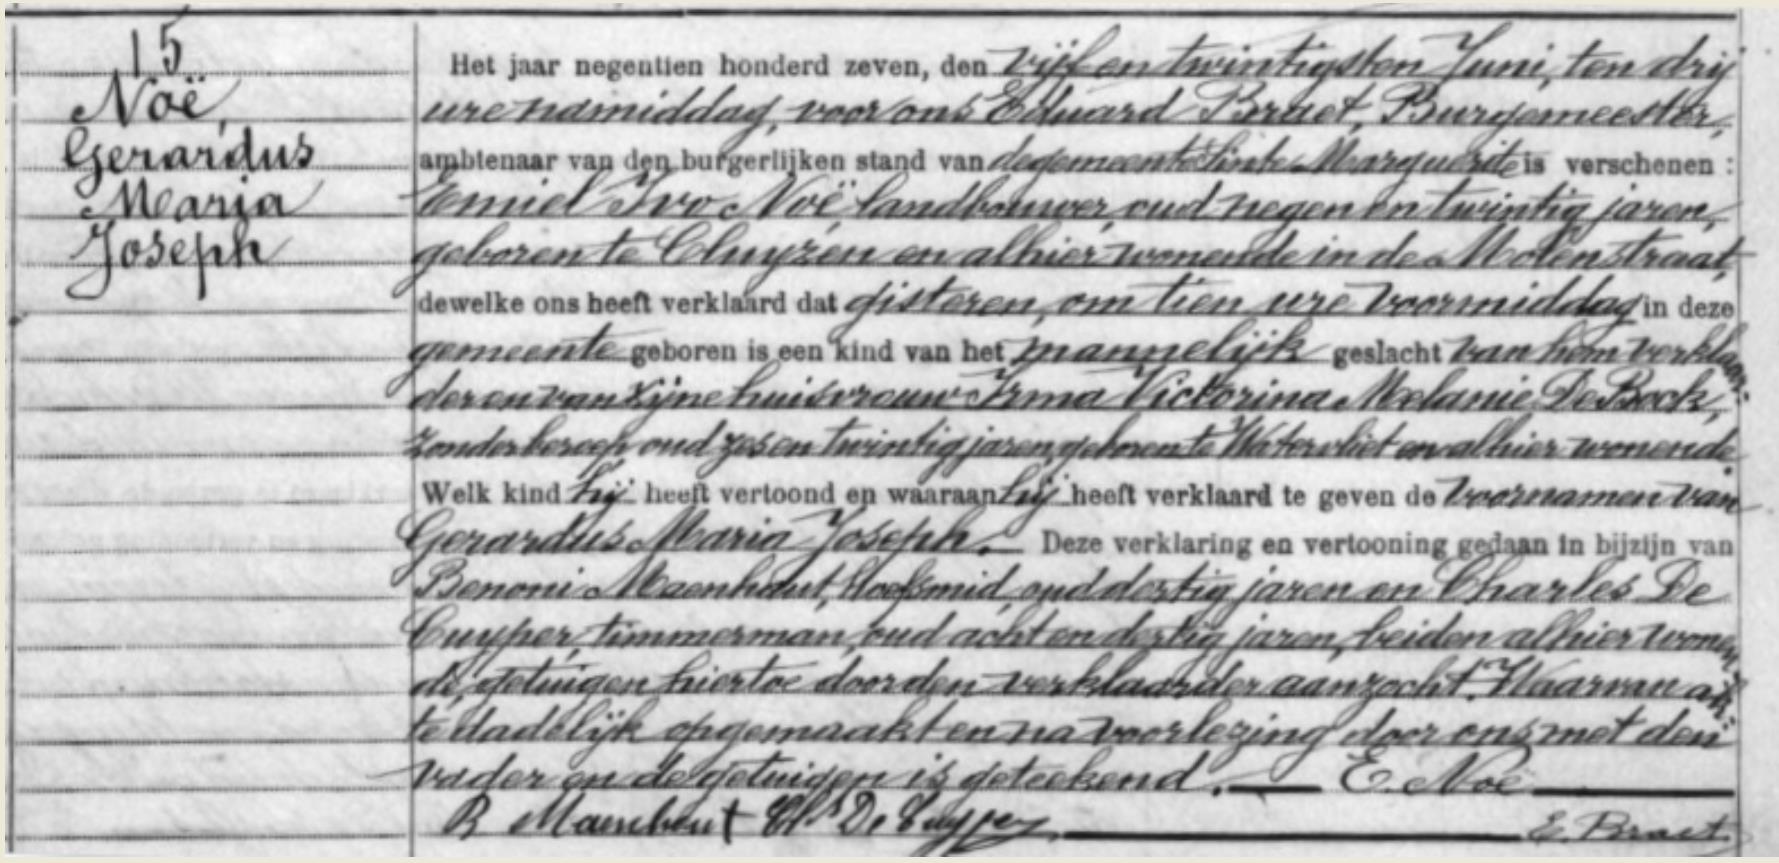 15
Noë,
Gerardus
Maria
Joseph
Het jaar negentien honderd zeven, den vijf en twintigsten Juni, ten drij
ure namiddag, voor ons Eduard Braet, Burgemeester,
ambtenaar van den burgerlijken stand van de gemeente Sinte Marguerite is verschenen :
Emiel Ivo Noë, landbouwer, oud negen en twintig jaren,
geboren te Cluyzen en alhier wonende in de Molenstraat,
dewelke ons heeft verklaard dat gisteren, om tien ure voormiddag in deze
gemeente geboren is een kind van het mannelijk geslacht van hem verklaar-
der en van zijne huisvrouw Irma Victorina Melanie De Bock,
zonder beroep, oud zes en twintig jaren, geboren te Watervliet en alhier wonende
Welk kind hij heeft vertoond en waaraan hij heeft verklaard te geven de voornamen van
Gerardus Maria Joseph. Deze verklaring en vertooning gedaan in bijzijn van
Benoni Maenhout, Hoefsmid, oud dertig jaren en Charles De
Cuyper, timmerman, oud acht en dertig jaren, beiden alhier wonen-
de, getuigen hiertoe door den verklaarder aanzocht. Waarvan ak-
te dadelijk opgemaakt en na voorlezing door ons met den
vader en de getuigen is geteekend. E. Noë
B Maenhout Chs De Cuyper E. Braet